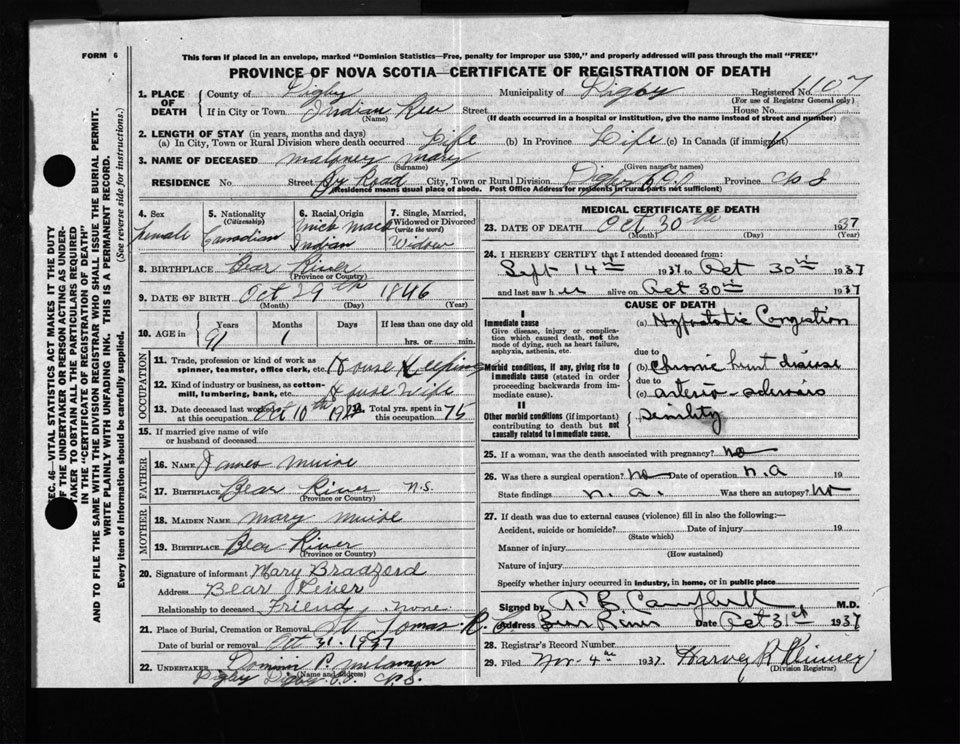 FORM 6
This form if placed in an envelope, marked "Dominion Statistics—Free, penalty for improper use $300," and properly addressed will pass through the mail "FREE"
PROVINCE OF NOVA SCOTIA—CERTIFICATE OF REGISTRATION OF DEATH
1. PLACE OF DEATH
County of Digby Municipality of Digby Registered No. 1107
(For use of Registrar General only)
If in City or Town Indian Rev Street House No.
(Name) (If death occurred in a hospital or institution, give the name instead of street and number)
2. LENGTH OF STAY (in years, months and days)
(a) In City, Town or Rural Division where death occurred Life (b) In Province Life (c) In Canada (if immigrant)
3. NAME OF DECEASED Maloney Mary
(Surname) (Given name or names)
RESIDENCE No. Street By Road City, Town or Rural Division Digby Co Province N S
(Residence means usual place of abode. Post Office Address for residents in rural parts not sufficient)
4. Sex
female
5. Nationality
(Citizenship)
Canadian
6. Racial Origin
Mick Mack
Indian
7. Single, Married, Widowed or Divorced
(write the word)
Widow
8. BIRTHPLACE Bear River
(Province or Country)
9. DATE OF BIRTH Oct 29th 1846
(Month) (Day) (Year)
10. AGE in
Years Months Days If less than one day old
91 1 hrs. or min.
OCCUPATION
11. Trade, profession or kind of work as spinner, teamster, office clerk, etc. House Keeping
12. Kind of industry or business, as cotton-mill, lumbering, bank, etc. House Wife
13. Date deceased last worked at this occupation Oct 10th Total yrs. spent in this occupation 75
15. If married give name of wife or husband of deceased
FATHER
16. NAME James Muise
17. BIRTHPLACE Bear River N.S.
(Province or Country)
MOTHER
18. MAIDEN NAME Mary Muise
19. BIRTHPLACE Bear River
(Province or Country)
20. Signature of informant Mary Bradford
Address Bear River
Relationship to deceased Friend None
21. Place of Burial, Cremation or Removal St Tomas R. C.
Date of burial or removal Oct 31. 1937
22. UNDERTAKER Dominic P.
(Name and address)
Digby Digby Co N.S.
MEDICAL CERTIFICATE OF DEATH
23. DATE OF DEATH Oct 30th 1937
(Month) (Day) (Year)
24. I HEREBY CERTIFY that I attended deceased from:
Sept 14th 1937 to Oct 30th 1937
and last saw her alive on Oct 30th 1937
CAUSE OF DEATH
I
Immediate cause
Give disease, injury or complication which caused death, not the mode of dying, such as heart failure, asphyxia, asthenia, etc.
(a) Hypostatic Congestion
due to
Morbid conditions, if any, giving rise to immediate cause (stated in order proceeding backwards from immediate cause).
(b) Chronic heart disease
due to
(c) arterio-sclerosis
II
Other morbid conditions (if important) contributing to death but not causally related to immediate cause.
Senility
25. If a woman, was the death associated with pregnancy? No
26. Was there a surgical operation? No Date of operation n.a 19
State findings n.a. Was there an autopsy? No
27. If death was due to external causes (violence) fill in also the following:—
Accident, suicide or homicide? Date of injury 19
(State which)
Manner of injury
(How sustained)
Nature of injury
Specify whether injury occurred in industry, in home, or in public place
Signed by Campbell M.D.
Address Bear River Date Oct 31st 1937
28. Registrar's Record Number
29. Filed Nov. 4th 1937. Harvey R
(Division Registrar)
SEC. 46—VITAL STATISTICS ACT MAKES IT THE DUTY
OF THE UNDERTAKER OR PERSON ACTING AS UNDERTAKER TO OBTAIN ALL THE PARTICULARS REQUIRED
IN THE "CERTIFICATE OF REGISTRATION OF DEATH"
AND TO FILE THE SAME WITH THE DIVISION REGISTRAR WHO SHALL ISSUE THE BURIAL PERMIT.
WRITE PLAINLY WITH UNFADING INK. THIS IS A PERMANENT RECORD.
Every item of information should be carefully supplied. (See reverse side for instructions.)